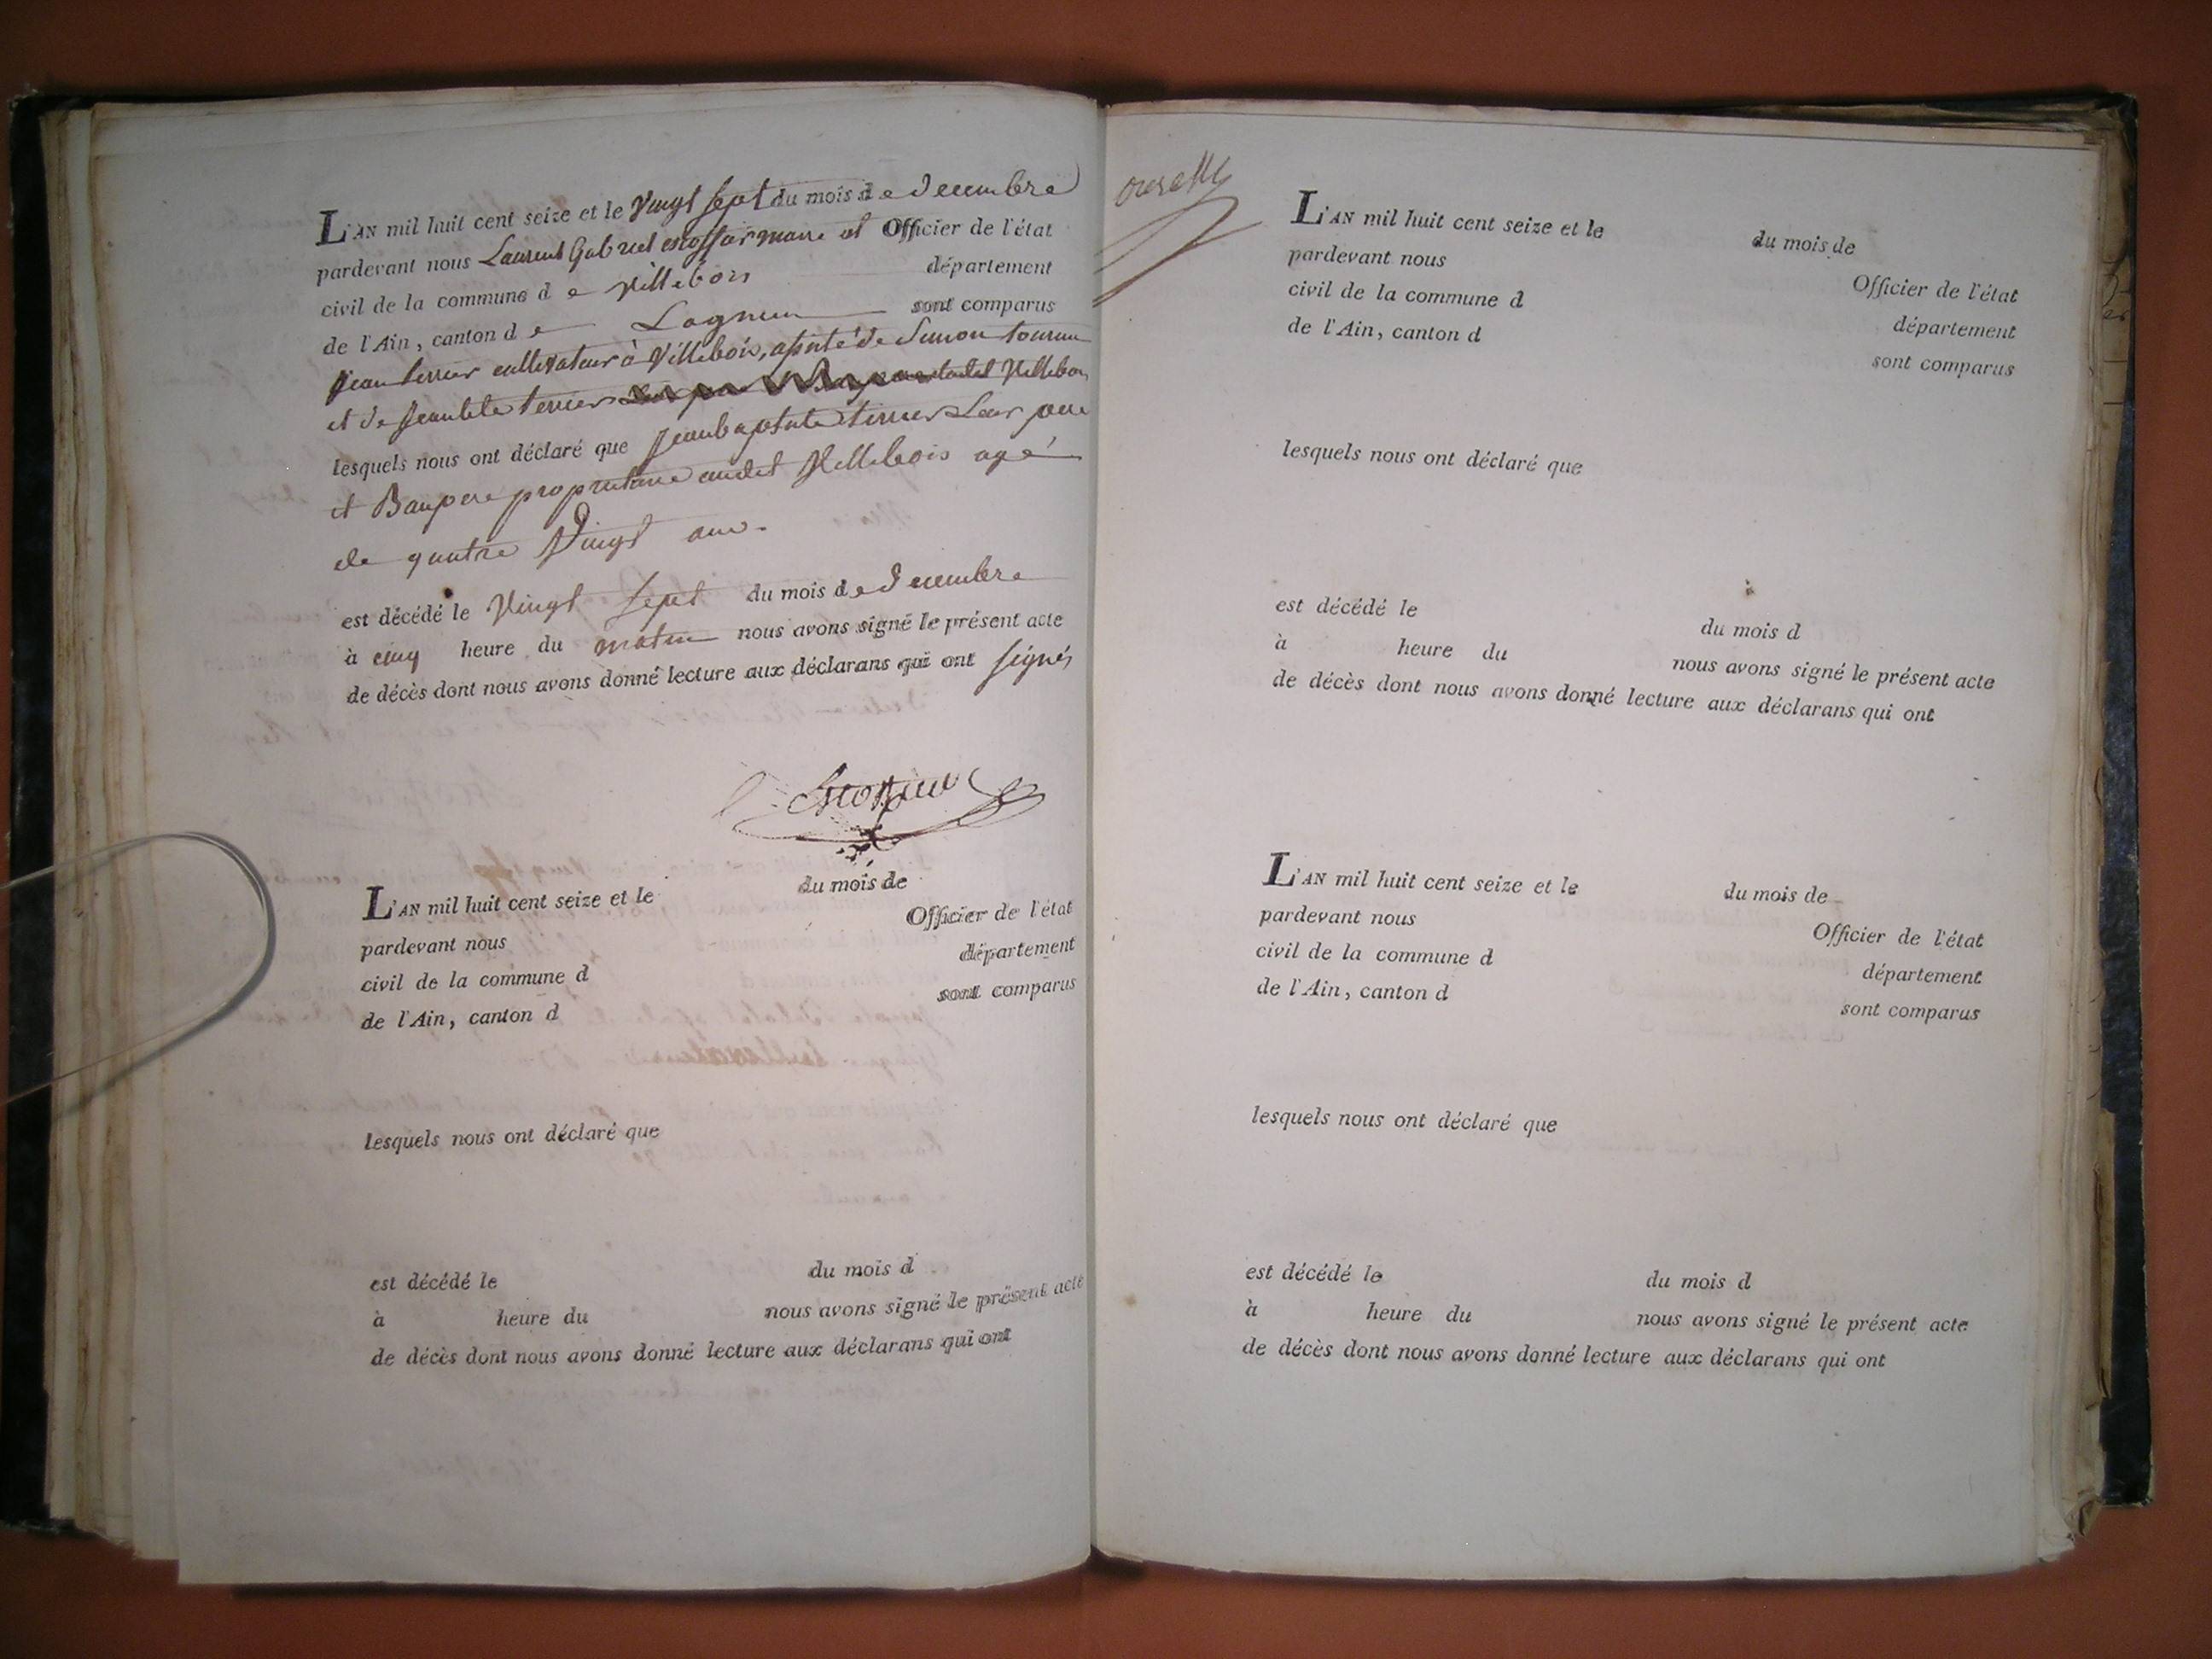 L'AN mil huit cent seize et le Vingt Sept du mois de decembre
pardevant nous Laurent Gabriel escoffier maire et Officier de l'état
civil de la commune de Villebois département
de l'Ain, canton de Lagnieu sont comparus
Jean terrier cultivateur à Villebois, assisté de Simon
et de Jean terrier Villebois
lesquels nous ont déclaré que Jeanbaptiste terrier Leur pere
et Baupere proprietaire audit Villebois agé
de quatre Vingt ans.
est décédé le Vingt Sept du mois de decembre
à cinq heure du matin nous avons signé le présent acte
de décès dont nous avons donné lecture aux déclarans qui ont signés
L'AN mil huit cent seize et le du mois de
pardevant nous Officier de l'état
civil de la commune d département
de l'Ain, canton d sont comparus
lesquels nous ont déclaré que
est décédé le du mois d
à heure du nous avons signé le présent acte
de décès dont nous avons donné lecture aux déclarans qui ont
L'AN mil huit cent seize et le du mois de
pardevant nous Officier de l'état
civil de la commune d département
de l'Ain, canton d sont comparus
lesquels nous ont déclaré que
est décédé le du mois d
à heure du nous avons signé le présent acte
de décès dont nous avons donné lecture aux déclarans qui ont
L'AN mil huit cent seize et le du mois de
pardevant nous Officier de l'état
civil de la commune d département
de l'Ain, canton d sont comparus
lesquels nous ont déclaré que
est décédé le du mois d
à heure du nous avons signé le présent acte
de décès dont nous avons donné lecture aux déclarans qui ont